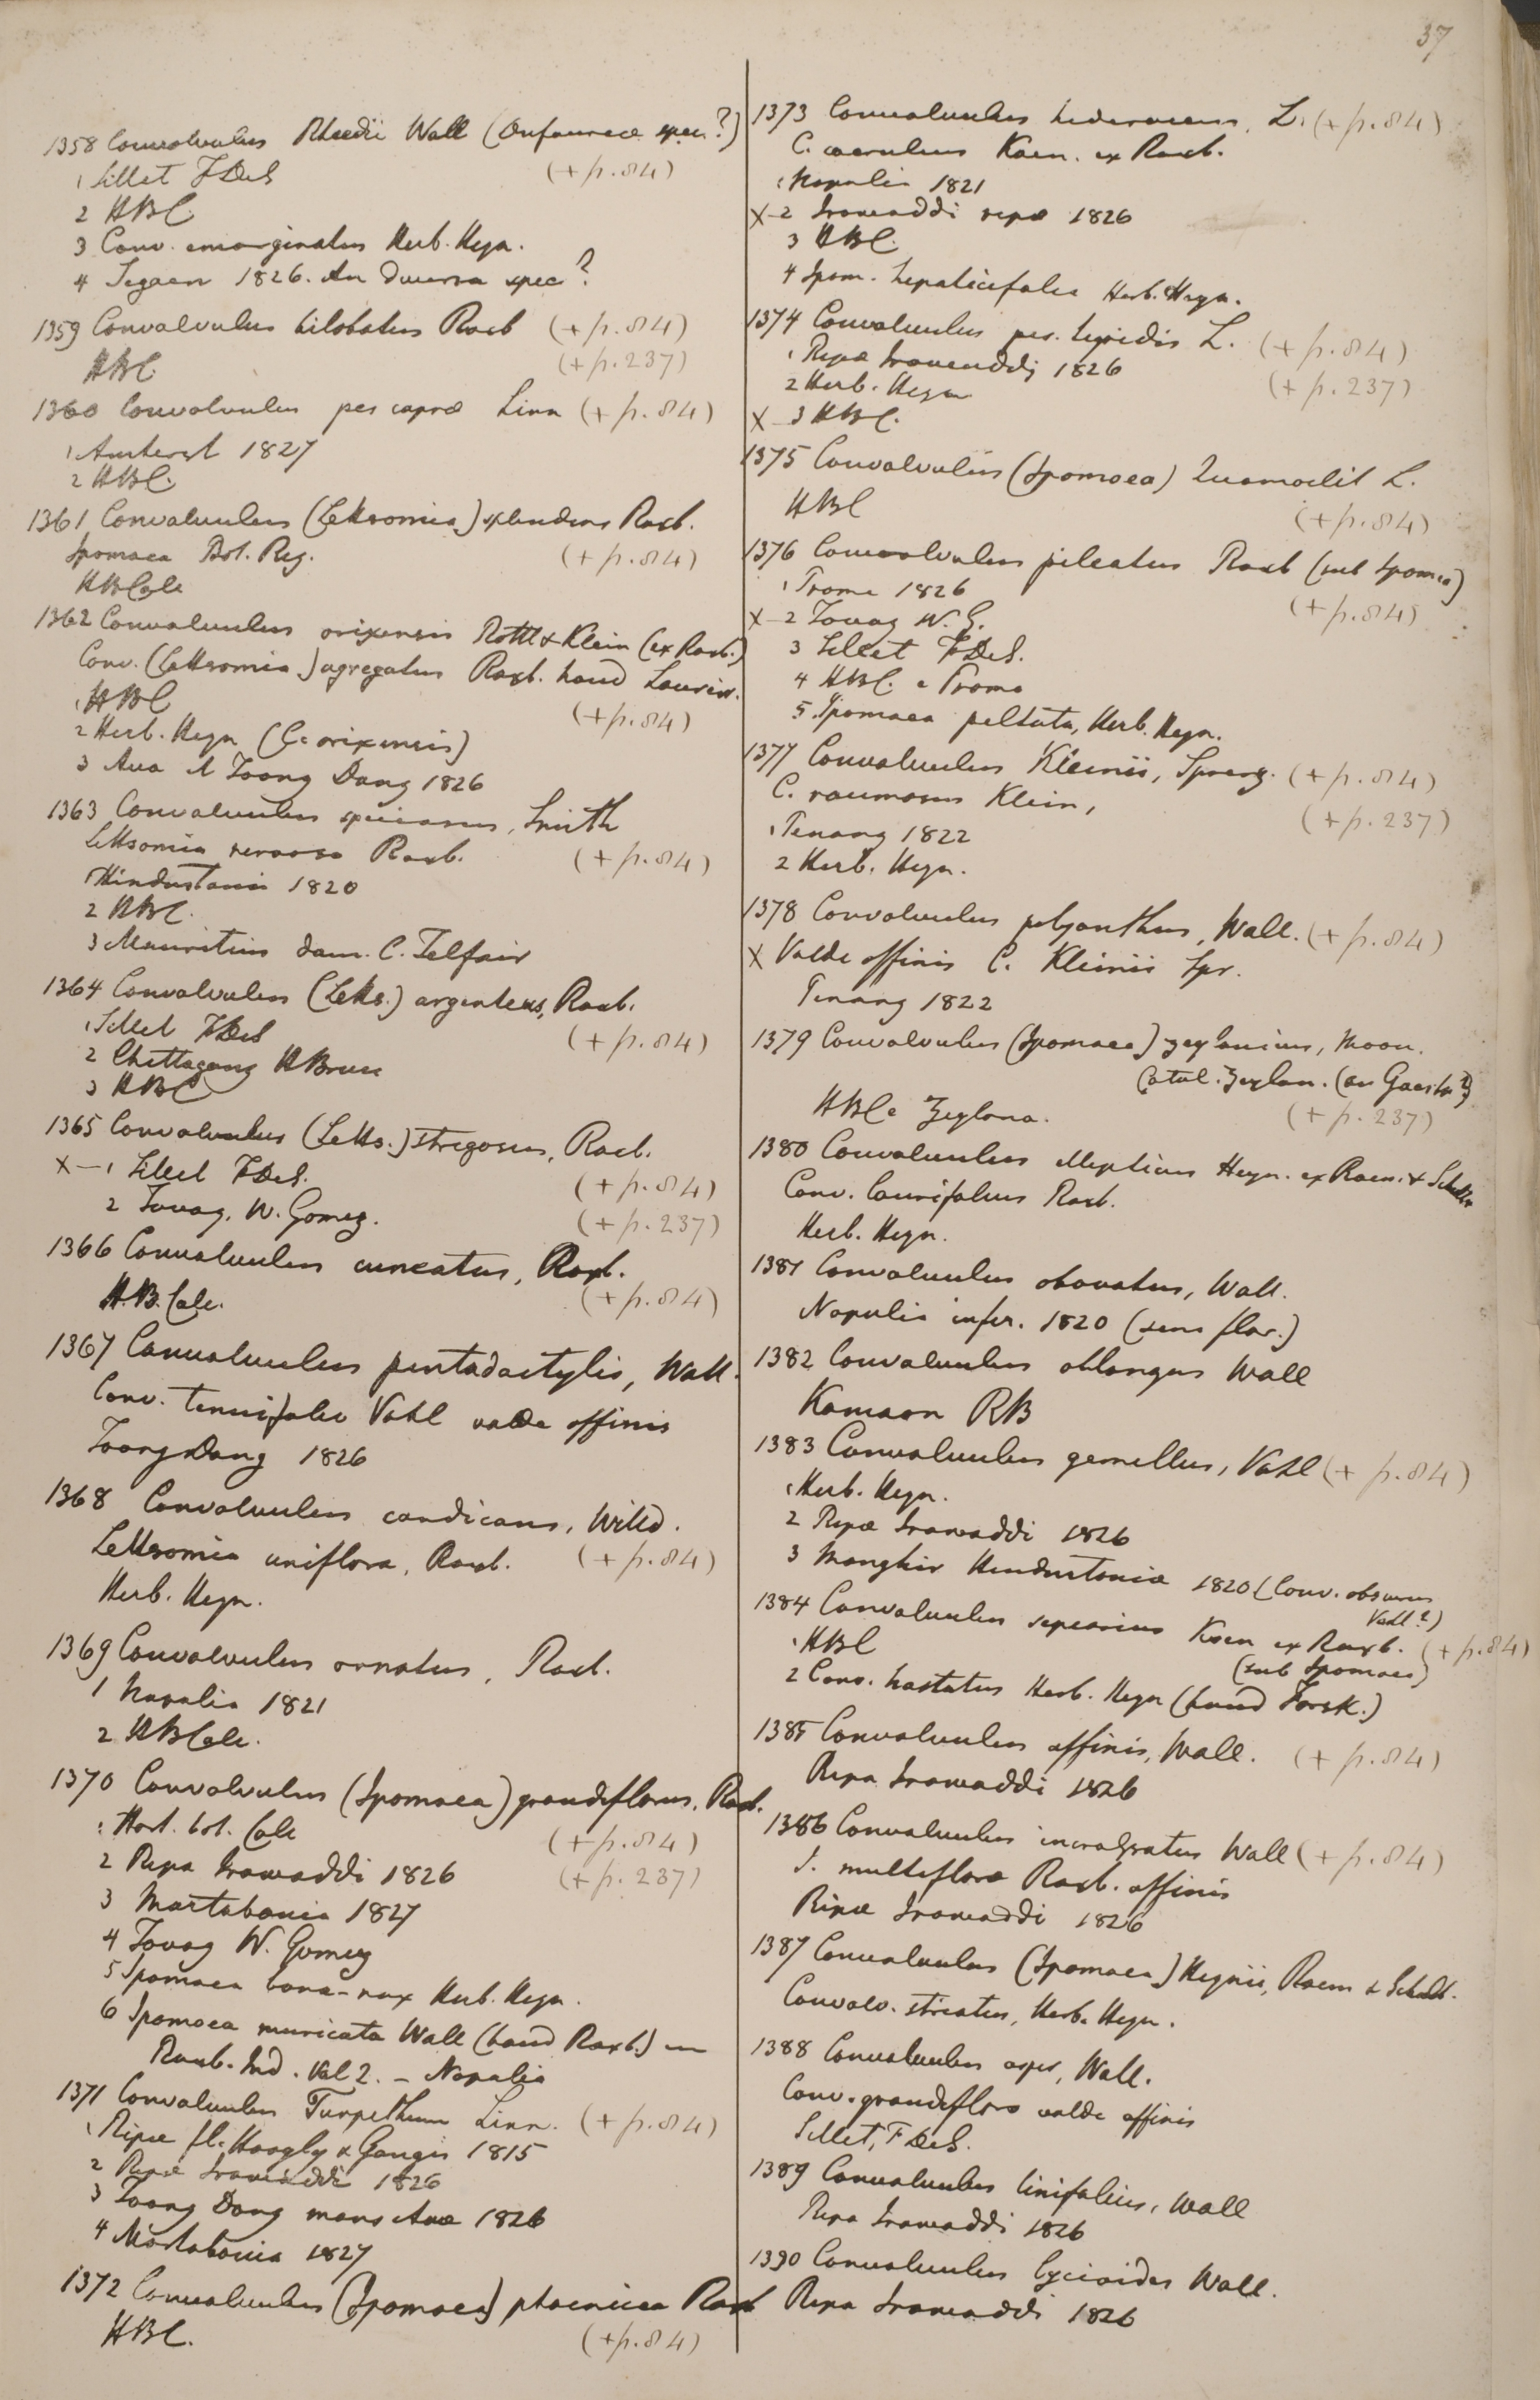 37
1358 Convolvulus Rheedii Wall (Onfaurece spec?)
1 Sillet FDeS (+ p. 84)
2 HBC
3 Conv. emarginatus Herb. Heyn.
4 Segaen 1826. An diversa spec?
1359 Convolvulus bilobatus Roxb (+ p. 84)
HBC (+ p. 237)
1360 Convolvulus pes caprae Linn (+ p. 84)
1 Amherst 1827
2 HBC.
1361 Convolvulus (Lettsomia) splendens Roxb.
Ipomaea Bot. Reg. (+ p. 84)
HBCalc
1362 Convolvulus orixensis Rottl & Klein (ex Roxb.)
Conv. (Lettsomia) agregatus Roxb. haud Loureir.
1 HBC (+ p. 84)
2 Herb. Heyn (C. orixensis)
3 Ava & Toong Dong 1826
1363 Convolvulus speciosus, Smith
Lettsomia nervosa Roxb. (+ p. 84)
1 Hindustania 1820
2 HBC.
3 Mauritius dam. C. Telfair
1364 Convolvulus (Letts.) argenteus, Roxb.
1 Sillet FDeS (+ p. 84)
2 Chittagong HBruce
3 HBC
1365 Convolvulus (Letts.) strigosus, Roxb.
X – 1 Sillet FDeS. (+ p. 84)
2 Tavoy, W. Gomez. (+ p. 237)
1366 Convolvulus cuneatus, Roxb.
H.B. Calc. (+ p. 84)
1367 Convolvulus pentadactylis, Wall.
Conv. tenuifolio Vahl valde affinis
Toong Dong 1826
1368 Convolvulus candicans, Willd.
Lettsomia uniflora, Roxb. (+ p. 84)
Herb. Heyn.
1369 Convolvulus ornatus, Roxb.
1 Napalia 1821
2 HBCalc.
1370 Convolvulus (Ipomaea) grandiflorus, Roxb.
1 Hort. bot. Calc (+ p. 84)
2 Ripa Irawaddi 1826 (+ p. 237)
3 Martabania 1827
4 Tavoy W. Gomez
5 Ipomaea bona-nox Herb. Heyn.
6 Ipomoea muricata Wall (haud Roxb.) in
Roxb. Ind. Vol 2. – Napalia
1371 Convolvulus Turpethum Linn. (+ p. 84)
1 Ripae fl. Hoogly & Gangis 1815
2 Ripae Irawaddi 1826
3 Toong Dong mons Avae 1826
4 Martabania 1827
1372 Convolvulus (Ipomaea) phaenicea Roxb
HBC. (+ p. 84)
1373 Convolvulus hederaceus, L. (+ p. 84)
C. caeruleus Koen. ex Roxb.
1 Napalia 1821
X – 2 Irawaddi ripae 1826
3 HBC.
4 Ipom. hepaticifolia Herb. Heyn.
1374 Convolvulus pes. tigridis L. (+ p. 84)
1 Ripae Irawaddi 1826 (+ p. 237)
2 Herb. Heyn
X – 3 HBC.
1375 Convolvulus (Ipomoea) Quamoclit L.
HBC (+ p. 84)
1376 Convolvulus pileatus Roxb (sub Ipomea)
1 Prome 1826 (+ p. 84)
X – 2 Tavoy W. G.
3 Sillet FDeS.
4 HBC. e Prome
5 Ipomaea peltata, Herb. Heyn.
1377 Convolvulus Kleinii, Spreng. (+ p. 84)
C. racemosus Klein, (+ p. 237)
1 Penang 1822
2 Herb. Heyn.
1378 Convolvulus polyanthus, Wall. (+ p. 84)
X Valde affinis C. Kleinii Spr.
Penang 1822
1379 Convolvulus (Ipomaea) zeylanicus, Moon.
Catal. Zeylan. (an Gaertn?)
HBC e Zeylona. (+ p. 237)
1380 Convolvulus ellipticus Heyn. ex Roem. & Schult
Conv. laurifolius Roxb.
Herb. Heyn.
1381 Convolvulus obovatus, Wall.
Napalia infer. 1820 (sens flor.)
1382 Convolvulus oblongus Wall
Kamaon RB
1383 Convolvulus gemellus, Vahl (+ p. 84)
1 Herb. Heyn.
2 Ripae Irawaddi 1826
3 Monghir Hindustaniae 1820 (Conv. obscurus
Vahl?)
1384 Convolvulus sepiarius Koen ex Roxb. (+ p. 84)
1 HBC (sub Ipomaea)
2 Conv. hastatus Herb. Heyn (haud Forsk.)
1385 Convolvulus affinis, Wall. (+ p. 84)
Ripa Irawaddi 1826
1386 Convolvulus incrassatus Wall (+ p. 84)
I. multiflora Roxb. affinis
Ripae Irawaddi 1826
1387 Convolvulus (Ipomaea) Heynii, Roem & Schult.
Convolv. striatus, Herb. Heyn.
1388 Convolvulus asper, Wall.
Conv. grandifloro valde affinis
Sillet, F DeS.
1389 Convolvulus linifolius, Wall
Ripa Irawaddi 1826
1390 Convolvulus lycioides Wall.
Ripa Irawaddi 1826